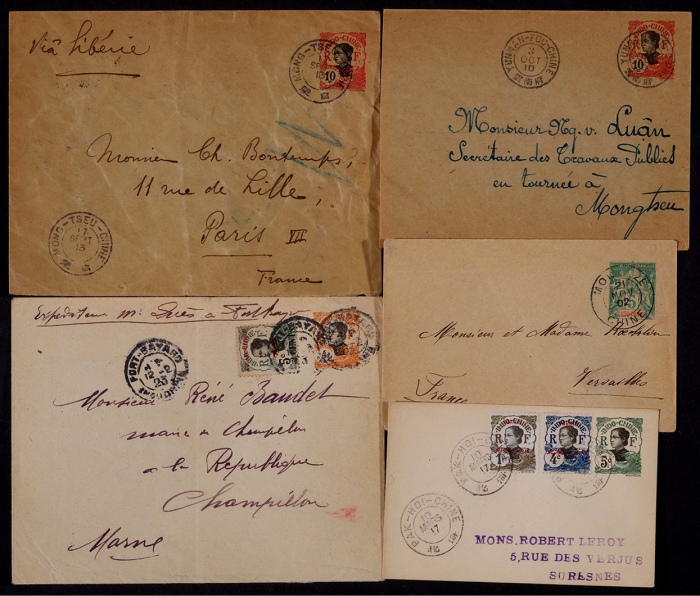 Via Sibérie
MONG-TSEU-CHINE
10
R F
Monsieur Ch. Bontemps,
11 rue de Lille,
Paris VII
France
MONG-TSEU-CHINE
17
SEPT
13
YUNNAN-FOU-CHINE
3
OCT
10
INDO-CHINE
R F
10
Monsieur Ng. v. Luân
Secrétaire des Travaux Publics
en tournée à
Mongtseu
21
02
CHINE
5
Monsieur et Madame
Versailles
France
Expéditeur
FORT-BAYARD
23
R F
Monsieur René Baudet
maire de Champillon
à la République
Champillon
Marne
INDO-CHINE
R F
1c
INDO-CHINE
R F
4c
INDO-CHINE
R F
5c
PAK-HOI-CHINE
10
17
PAK-HOI-CHINE
10
17
MONS. ROBERT LEROY
5, RUE DES VERJUS
SURESNES